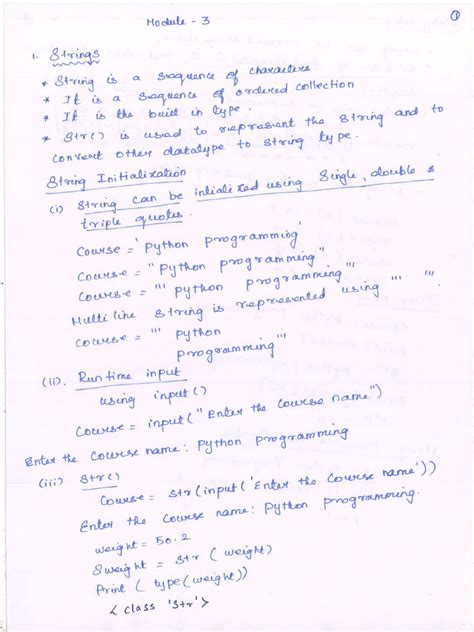 Module - 3
1
1. Strings
* String is a sequence of characters
* It is a sequence of ordered collection
* It is the built in type.
* Str() is used to represent the string and to
convert other datatype to string type.
String Initialization
(i) String can be intialized using Single, double &
triple quotes.
Course = 'Python programming'
Course = "Python programming"
Course = ''' python programming'''
Multi line string is represented using ''' '''
Course = ''' python
programming'''
(ii). Run time input
using input()
Course = input("Enter the Course name")
Enter the Course name: Python programming
(iii) Str()
Course = Str(input('Enter the Course name'))
Enter the Course name: Python programming.
weight = 50.2
Sweight = Str ( weight)
Print ( type(weight))
< class 'Str'>